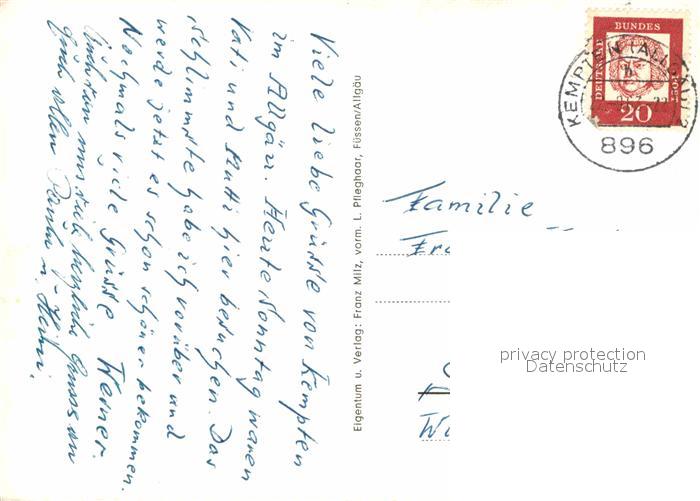 Viele liebe Grüsse von Kempten
im Allgäu. Heute Sonntag waren
Vati und Mutti hier besuchen. Das
schlimmste habe ich vorüber und
werde jetzt es schon schöner bekommen.
Nochmals viele Grüsse Werner.
herzliche
Euch allen
Eigentum u. Verlag: Franz Milz, vorm. L. Pfleghaar, Füssen/Allgäu
DEUTSCHE
BUNDES
POST
20
KEMPTEN (ALLGÄU) 2
b
896
Familie
Fr
privacy protection
Datenschutz